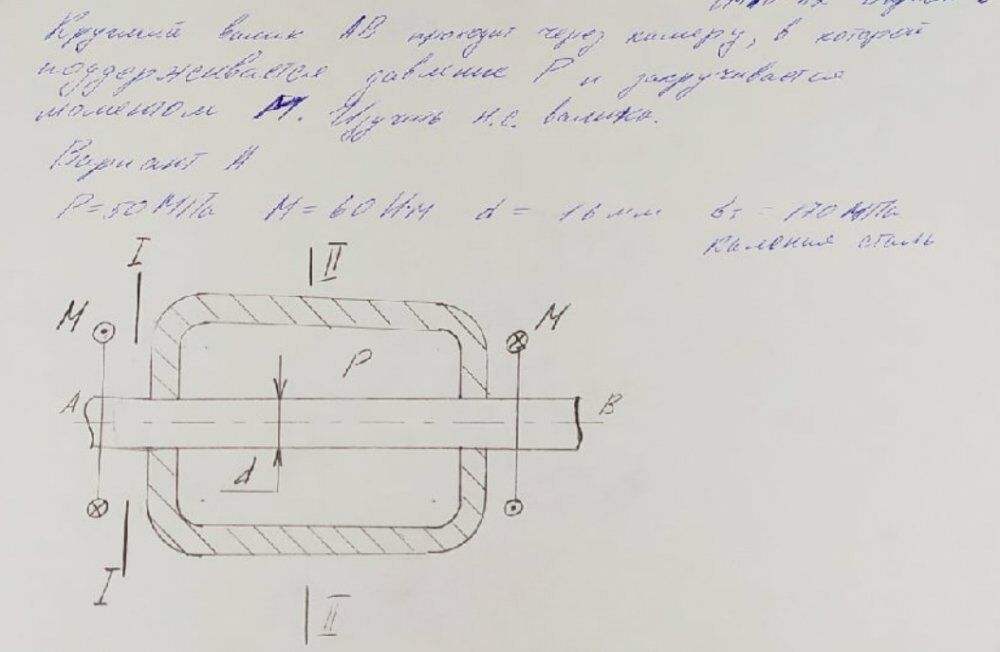 Круглый валик АВ проходит через камеру, в которой
поддерживается давление P и закручивается
моментом M. Изучить н.с. валика.
Вариант А
P = 50 МПа M = 60 Н·м d = 16 мм бт = 170 МПа
Каленая сталь
I
II
M
M
P
A
B
d
I
II